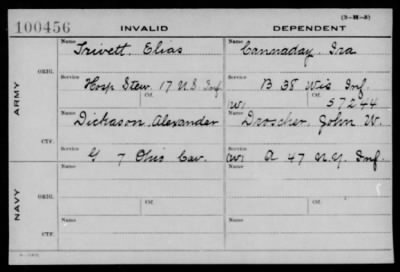 (3-M-8)
100456 INVALID DEPENDENT
ARMY
ORIG.
Name Trivett, Elias Name Cannaday, Ira
Service Hosp Stew. 17 U.S. Inf Service B 38 Wis Inf.
Ctf. (W) Ctf. 57244
CTF.
Name Dickason, Alexander Name Droscher, John W.
G 7 Ohio Cav. (W) A 47 N.Y. Inf.
NAVY
ORIG.
Name Name
Service Ctf. Service Ctf.
CTF.
Name Name